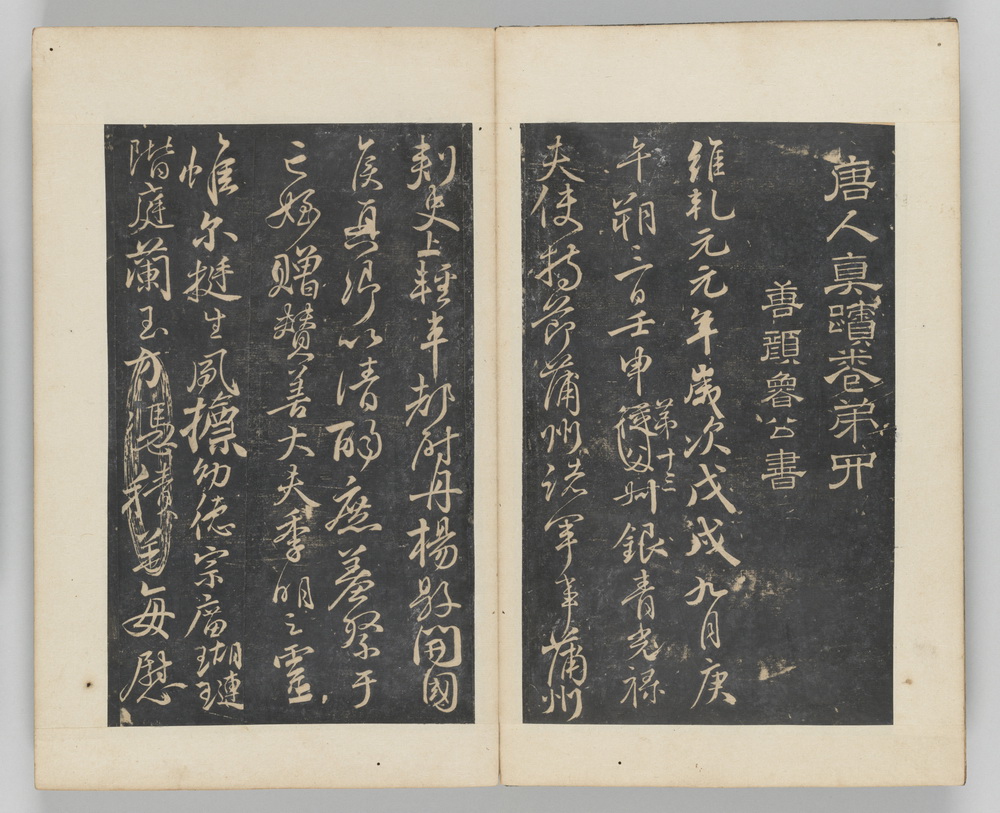 唐人真蹟卷弟四
善顏魯公書
維乾元元年歲次戊戌九月庚
午朔三日壬申第十三從父銀青光祿
夫使持節蒲州諸軍事蒲州
刾史上輕車都尉丹楊縣開國
侯真卿以清酌庶羞祭于
亡姪贈贊善大夫季明之靈
惟爾挺生夙摽幼德宗廟瑚璉
階庭蘭玉方憑積善每慰